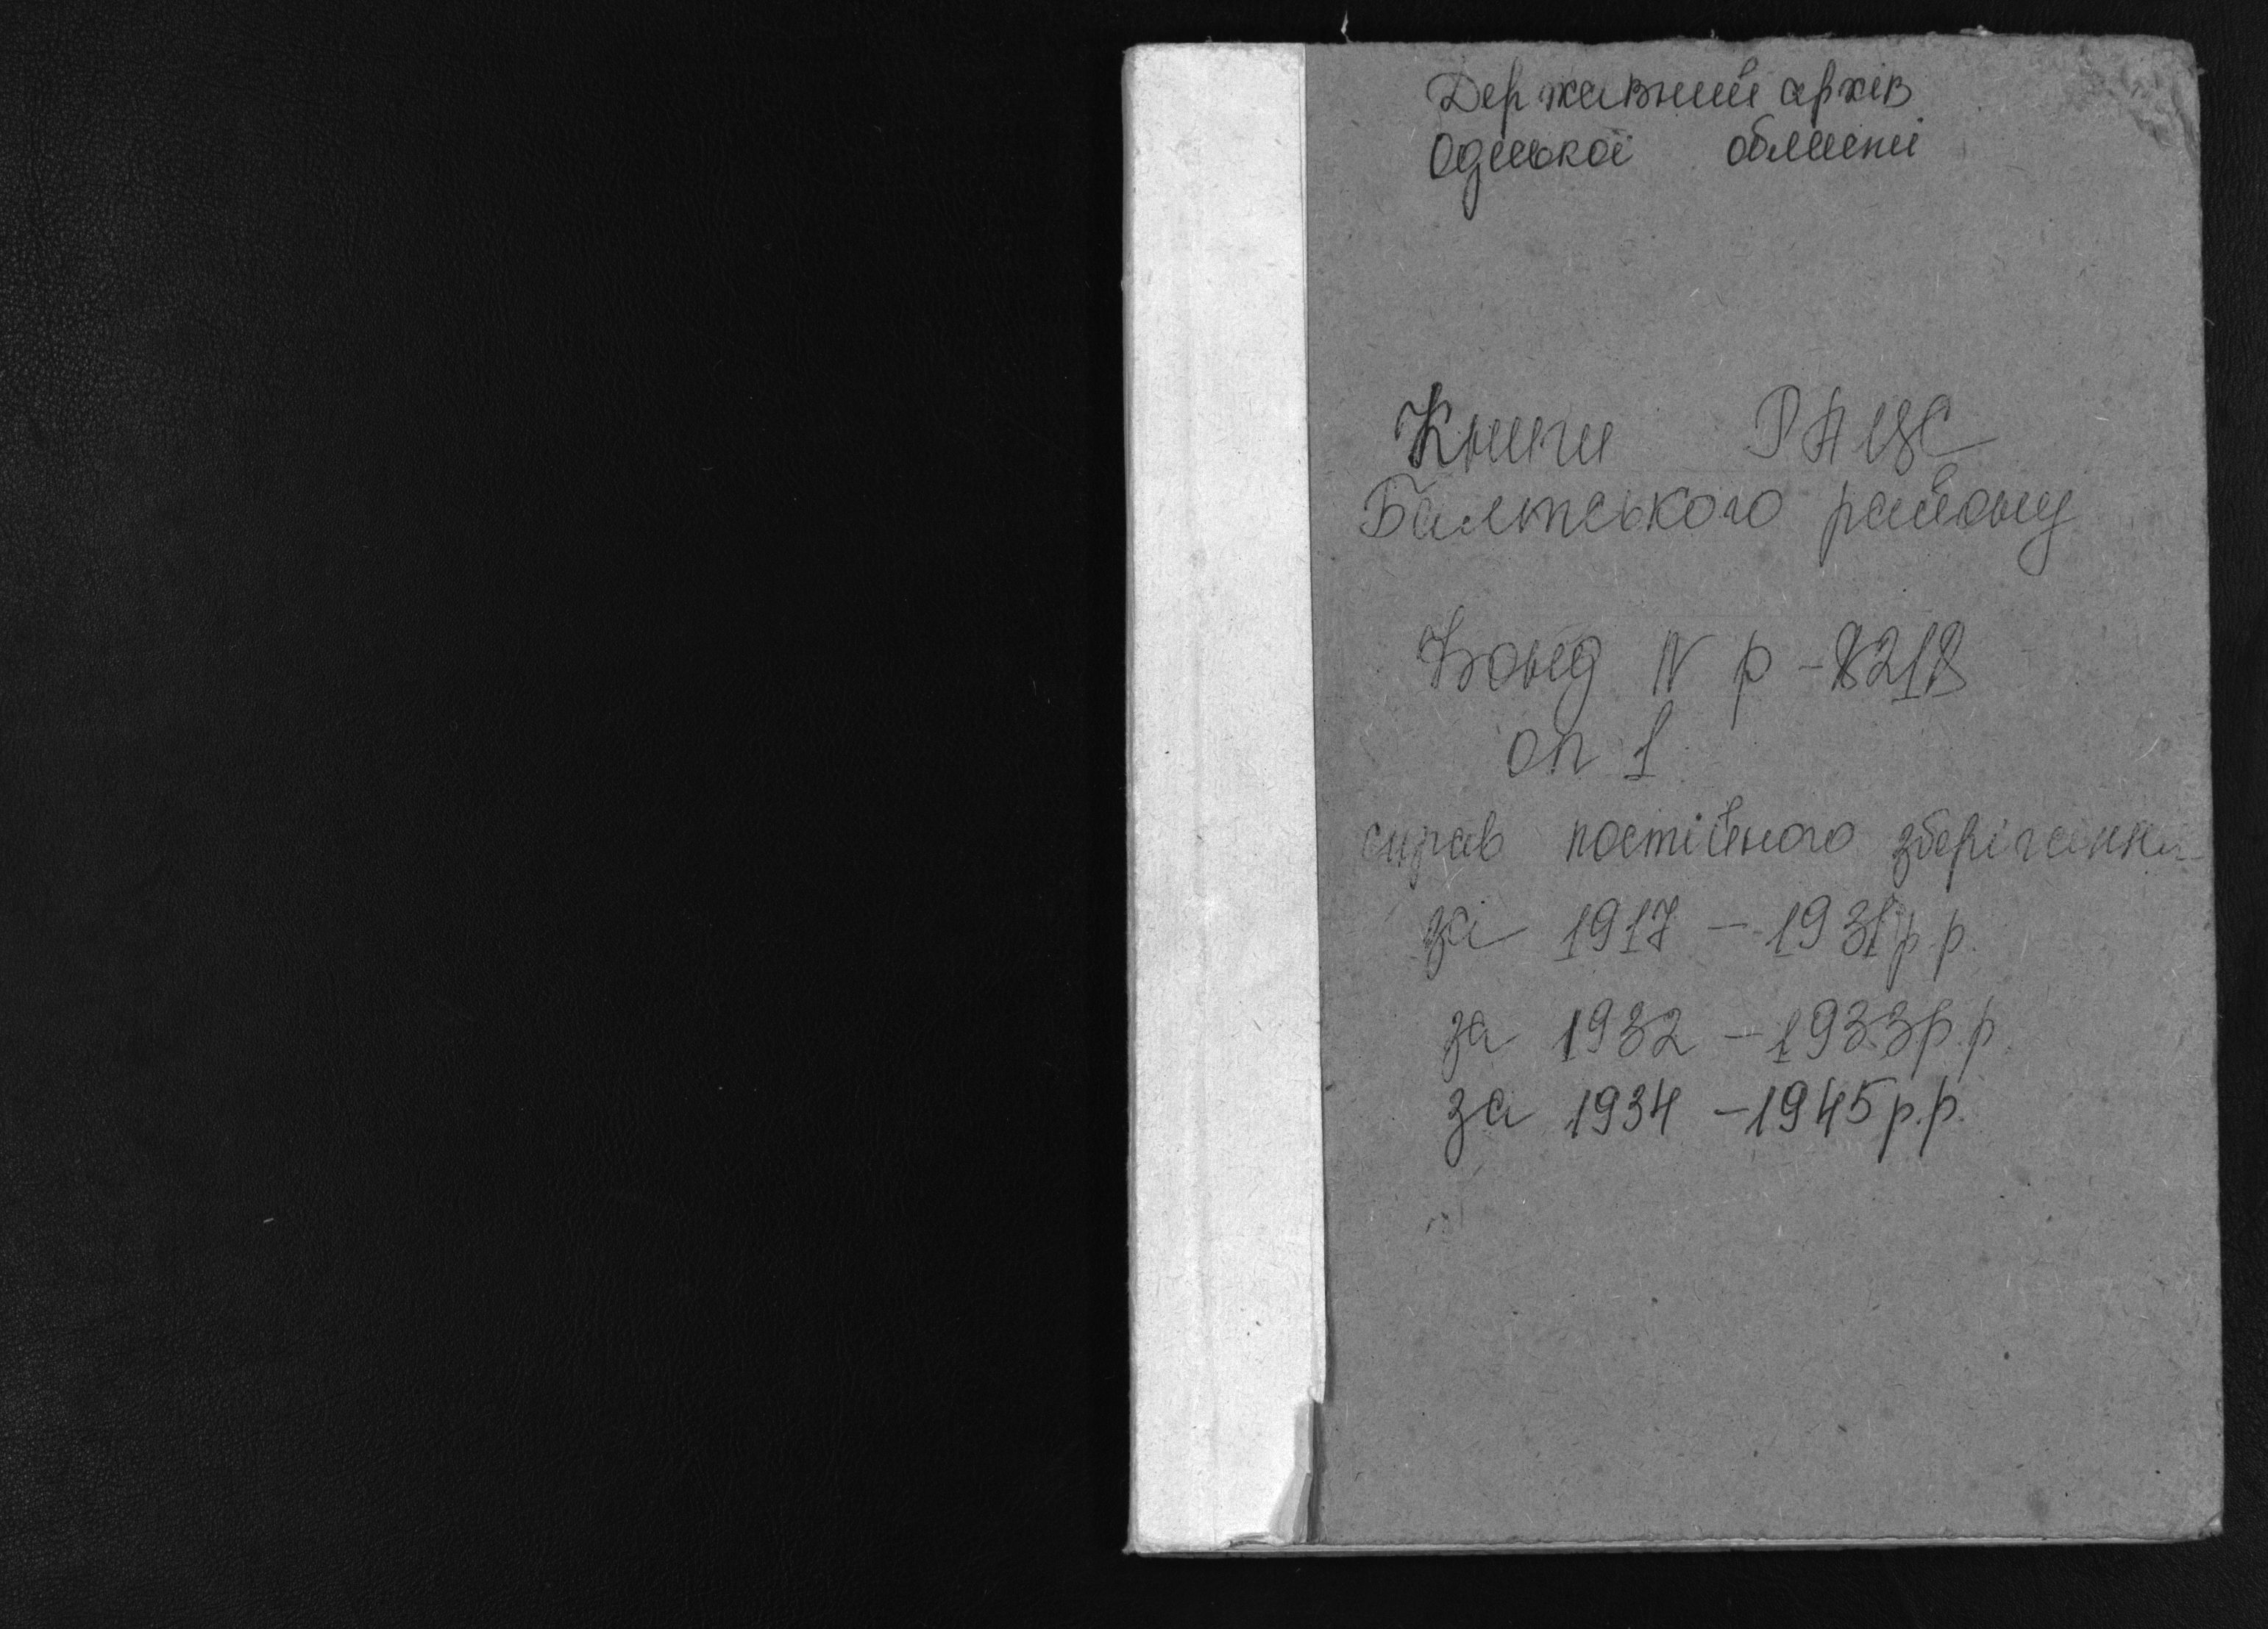 Державний архів
Одеської області
Книги РАЦС
Балтського району
Фонд N р - 8218
оп 1
справ постійного зберігання
за 1917 - 1931 р.р.
за 1932 - 1933 р.р.
за 1934 - 1945 р.р.